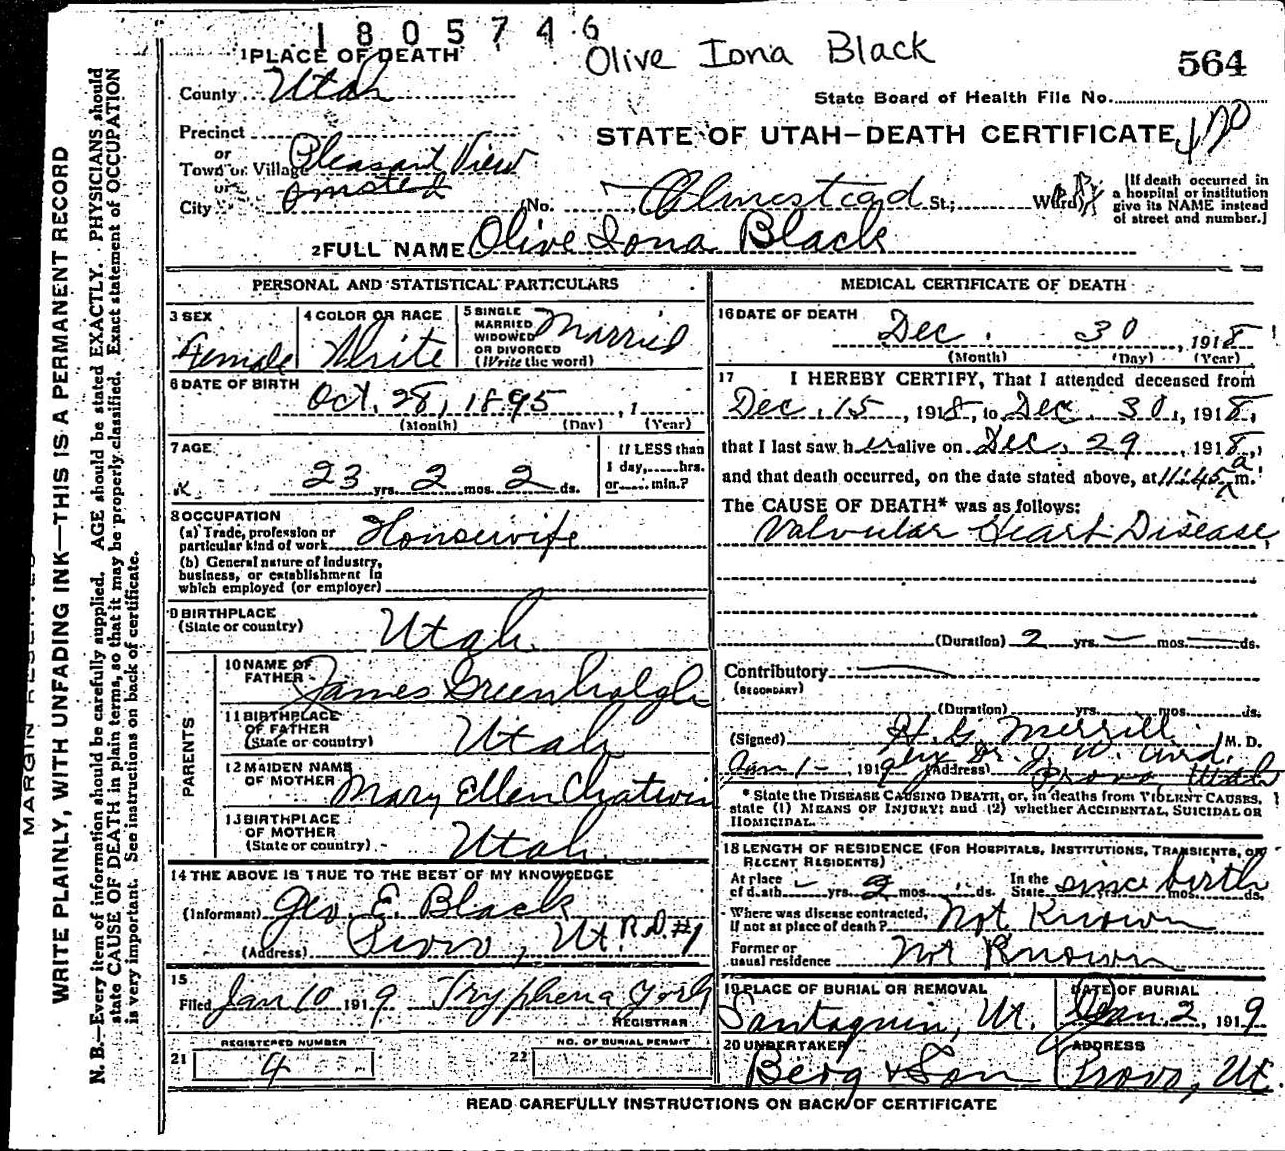 1805746
Olive Iona Black
564
1 PLACE OF DEATH
County Utah
State Board of Health File No.
Precinct
or
Town or Village Pleasant View
or
City
STATE OF UTAH—DEATH CERTIFICATE
(No. Olmestead St.; Ward)
[If death occurred in
a hospital or institution
give its NAME instead
of street and number.]
2 FULL NAME Olive Iona Black
PERSONAL AND STATISTICAL PARTICULARS
3 SEX
Female
4 COLOR OR RACE
White
5 SINGLE
MARRIED
WIDOWED
OR DIVORCED
(Write the word)
Married
6 DATE OF BIRTH
Oct. 28, 1895, 1
(Month) (Day) (Year)
7 AGE
23 yrs. 2 mos. 2 ds.
If LESS than
1 day, hrs.
or min.?
8 OCCUPATION
(a) Trade, profession or
particular kind of work Housewife
(b) General nature of industry,
business, or establishment in
which employed (or employer)
9 BIRTHPLACE
(State or country)
Utah
PARENTS
10 NAME OF
FATHER
James Greenhalgh
11 BIRTHPLACE
OF FATHER
(State or country)
Utah
12 MAIDEN NAME
OF MOTHER
Mary Ellen Chatwin
13 BIRTHPLACE
OF MOTHER
(State or country)
Utah
14 THE ABOVE IS TRUE TO THE BEST OF MY KNOWLEDGE
(Informant) Geo E. Black
(Address) Provo, Ut. R.D.#1
15
Filed Jan 10 1919 Tryphena York
REGISTRAR
21 REGISTERED NUMBER
4
22 NO. OF BURIAL PERMIT
MEDICAL CERTIFICATE OF DEATH
16 DATE OF DEATH
Dec. 30, 1918
(Month) (Day) (Year)
17 I HEREBY CERTIFY, That I attended deceased from
Dec. 15, 1918, to Dec. 30, 1918,
that I last saw her alive on Dec. 29, 1918,
and that death occurred, on the date stated above, at 11:45 a m.
The CAUSE OF DEATH* was as follows:
Valvular Heart Disease,
(Duration) 2 yrs. — mos. — ds.
Contributory
(SECONDARY)
(Duration) yrs. mos. ds.
(Signed) H. G. Merrill, M. D.
Jan 1 - , 1919 (Address) Provo Utah
* State the DISEASE CAUSING DEATH, or, in deaths from VIOLENT CAUSES,
state (1) MEANS OF INJURY; and (2) whether ACCIDENTAL, SUICIDAL OR
HOMICIDAL.
18 LENGTH OF RESIDENCE (FOR HOSPITALS, INSTITUTIONS, TRANSIENTS, OR
RECENT RESIDENTS)
At place
of death - yrs. 2 mos. ds.
In the
State since birth mos. ds.
Where was disease contracted,
If not at place of death? Not Known
Former or
usual residence Not Known
19 PLACE OF BURIAL OR REMOVAL
Santaquin, Ut.
DATE OF BURIAL
Jan. 2, 1919
20 UNDERTAKER
Berg & Son
ADDRESS
Provo, Ut.
READ CAREFULLY INSTRUCTIONS ON BACK OF CERTIFICATE
MARGIN
WRITE PLAINLY, WITH UNFADING INK—THIS IS A PERMANENT RECORD
N. B.—Every item of information should be carefully supplied. AGE should be stated EXACTLY. PHYSICIANS should
state CAUSE OF DEATH in plain terms, so that it may be properly classified. Exact statement of OCCUPATION
is very important. See instructions on back of certificate.